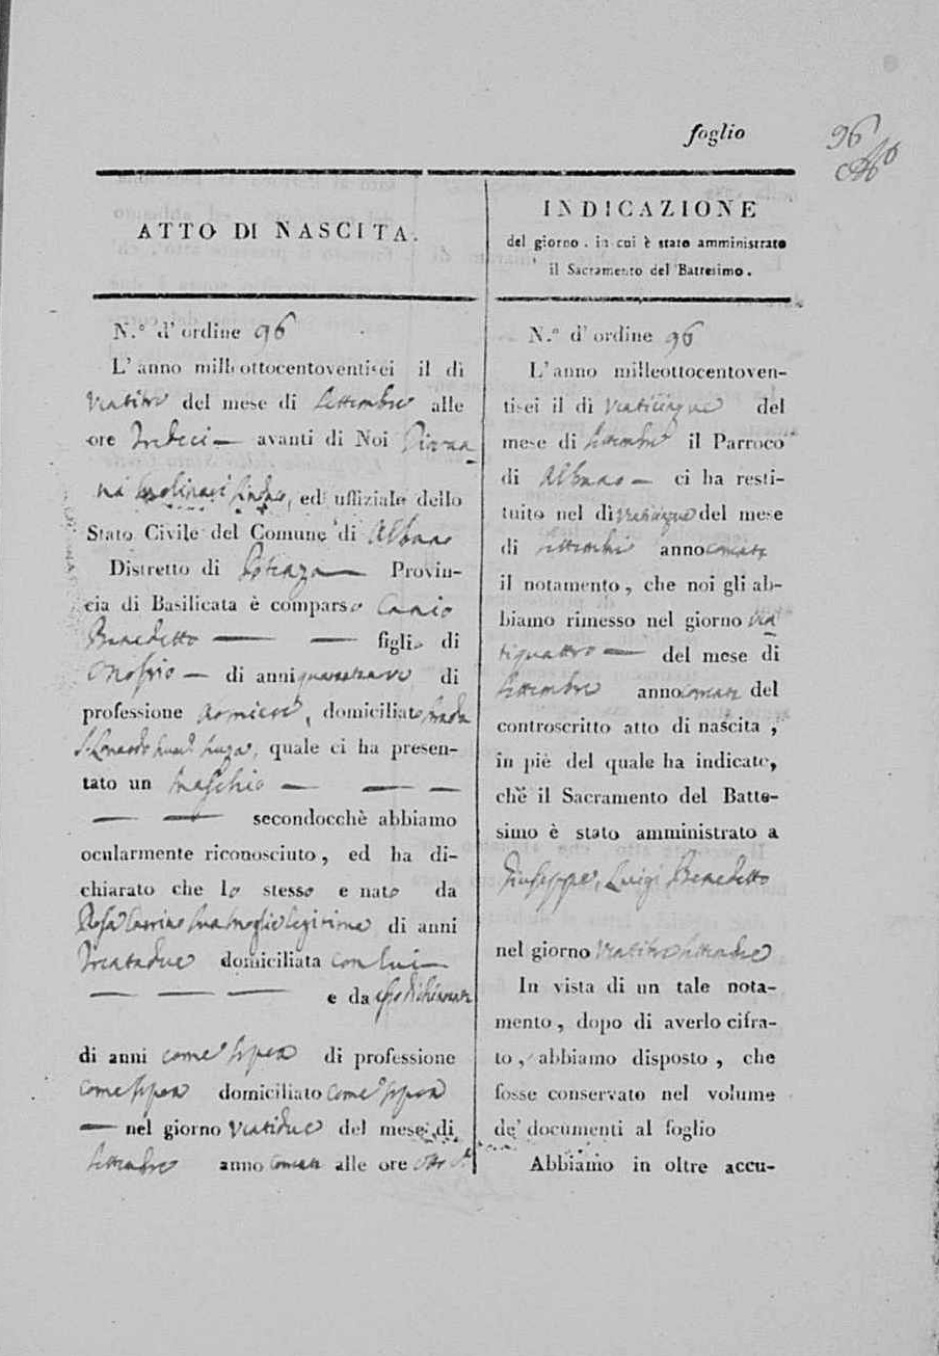 foglio
96
ATTO DI NASCITA.
N.° d'ordine 96
L'anno milleottocentoventisei il di
Ventitre del mese di Settembre alle
ore Tredeci — avanti di Noi Giovan
ni Sindaco, ed uffiziale dello
Stato Civile del Comune di Albano
Distretto di Potenza — Provin-
cia di Basilicata è comparso Canio
Benedetto — — figlio di
Onofrio — di anni quarantanove di
professione, domiciliato strada
S. Lonardo, quale ci ha presen-
tato un Maschio — — —
— — secondocchè abbiamo
ocularmente riconosciuto, ed ha di-
chiarato che lo stesso e nato da
Rosa sua moglie legitima di anni
Trentadue domiciliata con lui —
— — — e da esso dichiarante
di anni come sopra di professione
come sopra domiciliato come sopra
— nel giorno Ventidue del mese di
Settembre anno corrente alle ore otto
INDICAZIONE
del giorno, in cui è stato amministrato
il Sacramento del Battesimo.
N.° d'ordine 96
L'anno milleottocentoven-
tisei il di Venticinque del
mese di Settembre il Parroco
di Albano — ci ha resti-
tuito nel di Venticinque del mese
di Settembre anno corrente
il notamento, che noi gli ab-
biamo rimesso nel giorno Ven
tiquattro — del mese di
Settembre anno corrente del
controscritto atto di nascita,
in piè del quale ha indicato,
che il Sacramento del Batte-
simo è stato amministrato a
Giuseppe, Luigi Benedetto
nel giorno Ventitre Settembre
In vista di un tale nota-
mento, dopo di averlo cifra-
to, abbiamo disposto, che
fosse conservato nel volume
de' documenti al foglio
Abbiamo in oltre accu-